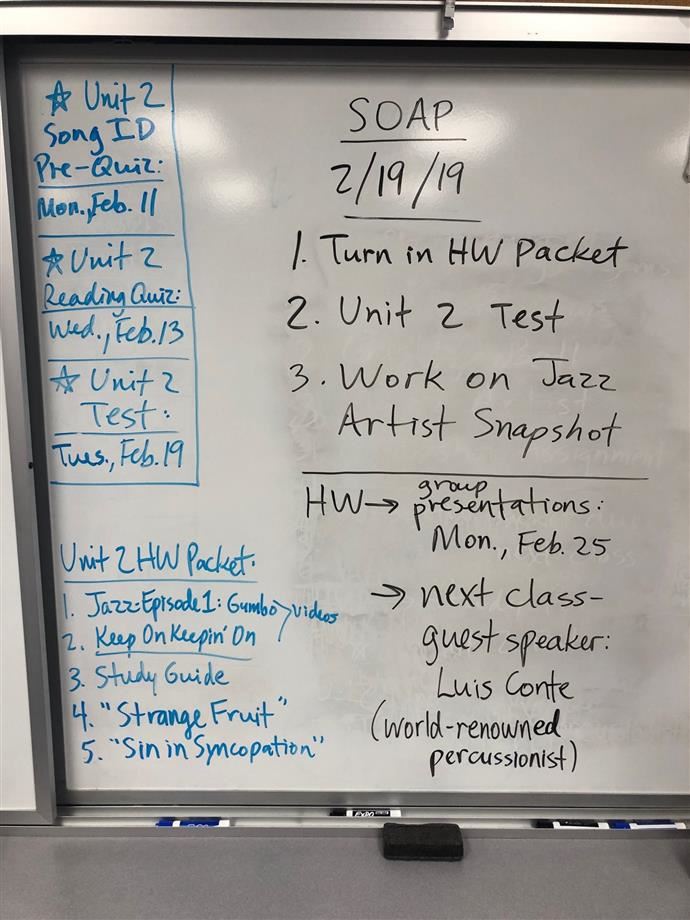 ☆ Unit 2
Song ID
Pre-Quiz:
Mon., Feb. 11
☆ Unit 2
Reading Quiz:
Wed., Feb. 13
☆ Unit 2
Test:
Tues., Feb. 19
Unit 2 HW Packet:
1. Jazz: Episode 1: Gumbo > videos
2. Keep On Keepin' On
3. Study Guide
4. "Strange Fruit"
5. "Sin in Syncopation"
SOAP
2/19/19
1. Turn in HW Packet
2. Unit 2 Test
3. Work on Jazz
Artist Snapshot
HW → group
presentations:
Mon., Feb. 25
→ next class-
guest speaker:
Luis Conte
(world-renowned
percussionist)
EXPO